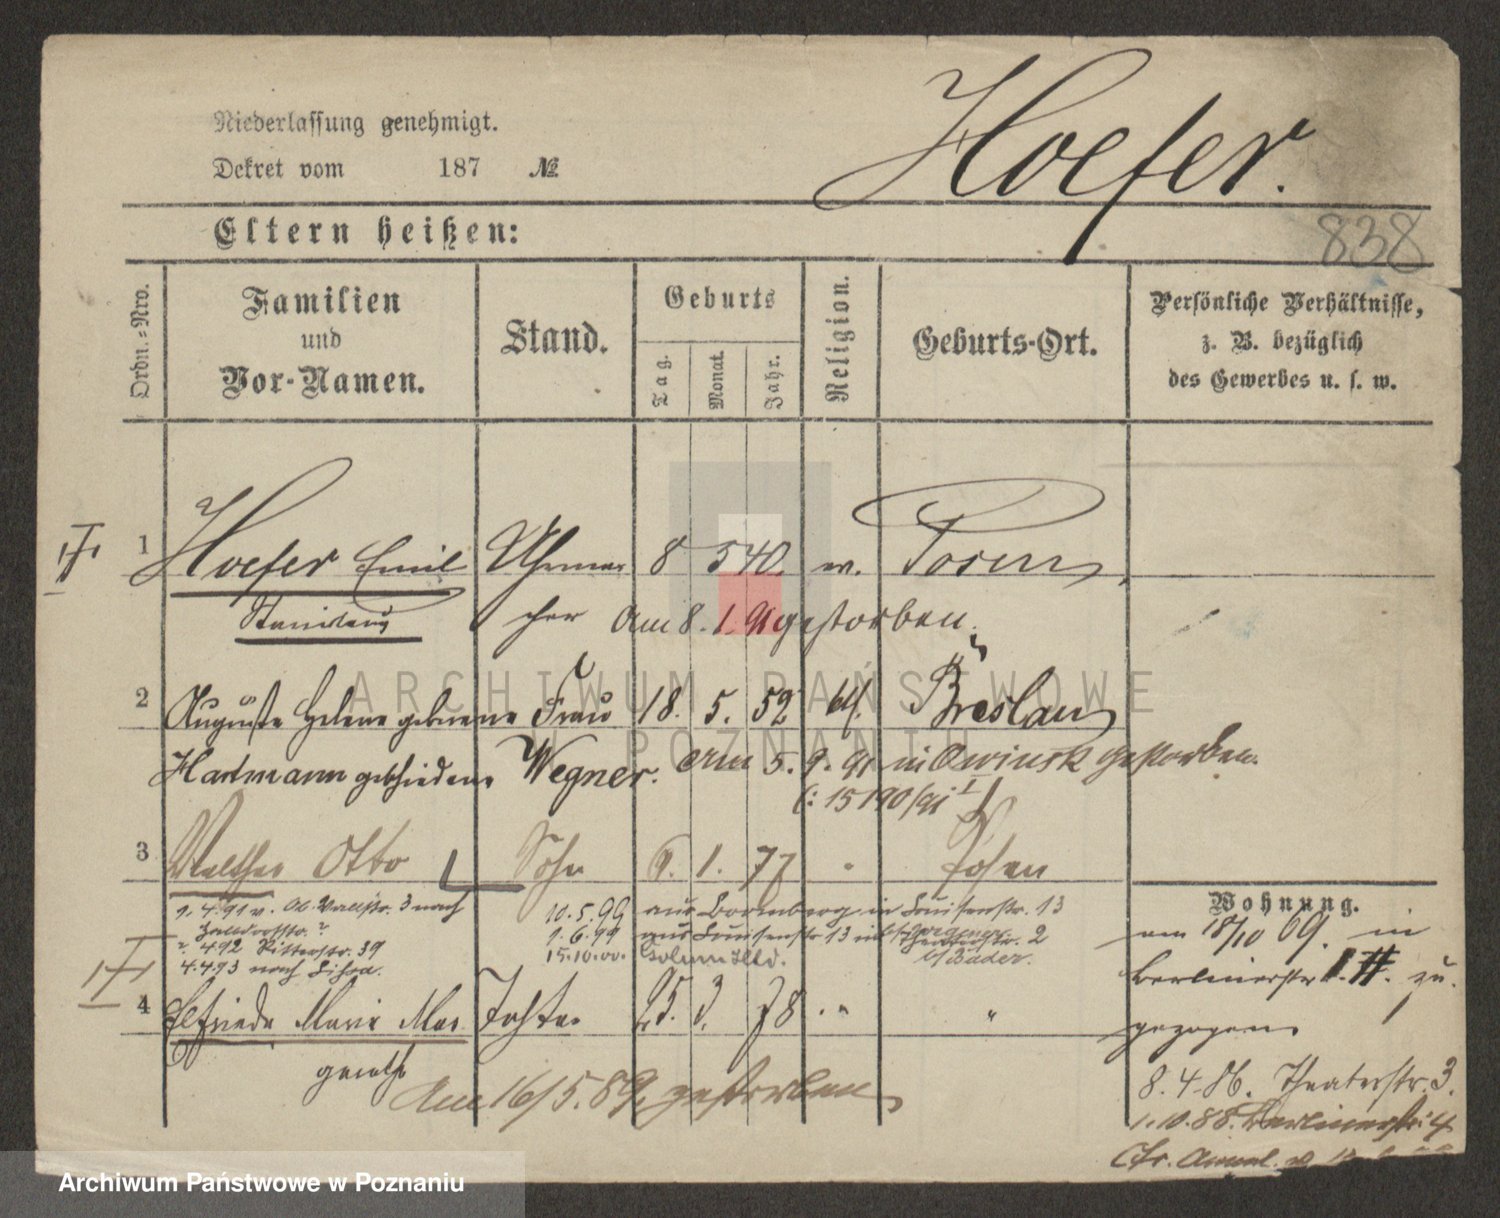 Hoefer.
Niederlassung genehmigt.
Dekret vom 187 №
838
Eltern heißen:
Ordn.-Nro.
Familien und Vor-Namen.
Stand.
Geburts
Tag.
Monat.
Jahr.
Religion.
Geburts-Ort.
Persönliche Verhältnisse,
z. B. bezüglich
des Gewerbes u. s. w.
1 Hoefer Emil Uhrma 8 5 40. Posen
Stanislaus cher am 8. 1. 91 gestorben.
ARCHIWUM PAŃSTWOWE
W POZNANIU
2 Auguste Helene geborene Frau 18. 5. 52 Breslau
Hartmann geschiedene Wegner. am 5. 9. 91 in Owinsk gestorben.
(: 15190/91
3 Walther Otto Sohn 9. 1. 77 " Posen
Wohnung.
9. 4. 91 v. Ob. Wallstr. 3 nach 10. 5. 99 aus Bromberg in Louisenstr. 13
? 4 92 Ritterstr. 39 1. 6. 99 aus Louisenstr. 13
4. 4. 93 nach 15. 10. 00. b/ Bader.
am 18/10 69. in
Berlinerstr. zu
gezogen.
4 Elfriede Marie Mar Tochter 25. 3. 78 " "
garethe
am 16/5. 89. gestorben
8. 4. 86. Theaterstr. 3.
1. 10. 88. Berlinerstr. 4
Archiwum Państwowe w Poznaniu